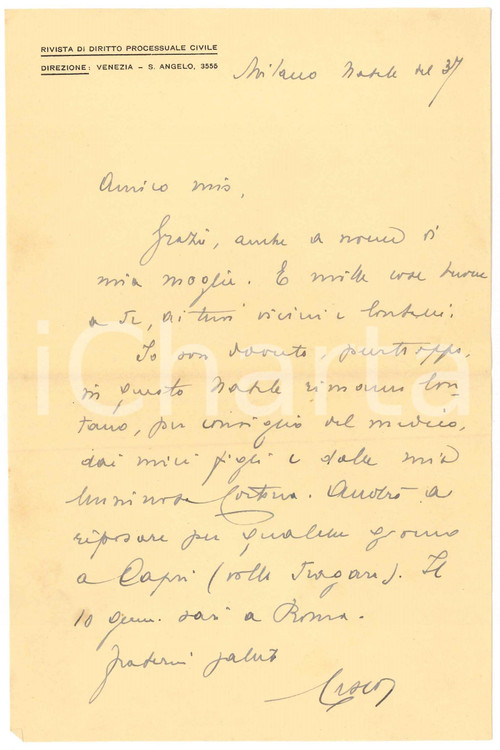 RIVISTA DI DIRITTO PROCESSUALE CIVILE
DIREZIONE: VENEZIA – S. ANGELO, 3555
Milano Natale del 37
Amico mio,
Grazie, anche a nome di
mia moglie. E mille cose buone
a te, ai tuoi vicini e lontani.
Io son dovuto, purtroppo,
in questo Natale rimaner lon-
tano, per consiglio del medico,
dai miei figli e dalla mia
luminosa Cortina. Andrò a
riposare per qualche giorno
a Capri (
Tragara). Il
10 genn. sarò a Roma.
fraterni saluti
iCharta